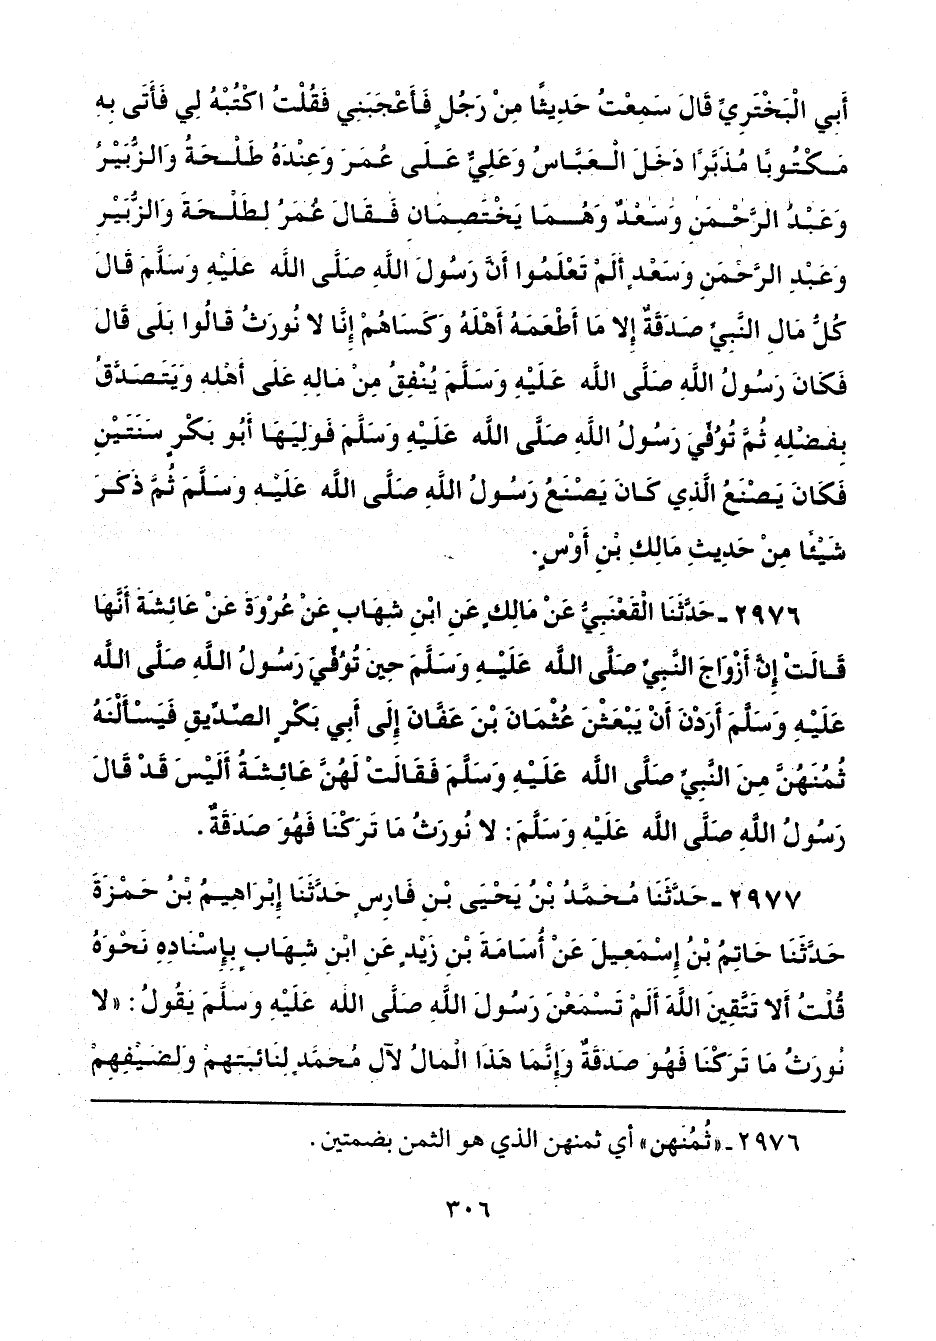 أَبِي الْبَخْتَرِيِّ قَالَ سَمِعْتُ حَدِيثًا مِنْ رَجُلٍ فَأَعْجَبَنِي فَقُلْتُ اكْتُبْهُ لِي فَأَتَى بِهِ
مَكْتُوبًا مُذَبَّرًا دَخَلَ الْعَبَّاسُ وَعَلِيٌّ عَلَى عُمَرَ وَعِنْدَهُ طَلْحَةُ وَالزُّبَيْرُ
وَعَبْدُ الرَّحْمَنِ وَسَعْدٌ وَهُمَا يَخْتَصِمَانِ فَقَالَ عُمَرُ لِطَلْحَةَ وَالزُّبَيْرِ
وَعَبْدِ الرَّحْمَنِ وَسَعْدٍ أَلَمْ تَعْلَمُوا أَنَّ رَسُولَ اللَّهِ صَلَّى اللَّه عَلَيْهِ وَسَلَّمَ قَالَ
كُلُّ مَالِ النَّبِيِّ صَدَقَةٌ إِلا مَا أَطْعَمَهُ أَهْلَهُ وَكَسَاهُمْ إِنَّا لا نُورَثُ قَالُوا بَلَى قَالَ
فَكَانَ رَسُولُ اللَّهِ صَلَّى اللَّه عَلَيْهِ وَسَلَّمَ يُنْفِقُ مِنْ مَالِهِ عَلَى أَهْلِهِ وَيَتَصَدَّقُ
بِفَضْلِهِ ثُمَّ تُوُفِّيَ رَسُولُ اللَّهِ صَلَّى اللَّه عَلَيْهِ وَسَلَّمَ فَوَلِيَهَا أَبُو بَكْرٍ سَنَتَيْنِ
فَكَانَ يَصْنَعُ الَّذِي كَانَ يَصْنَعُ رَسُولُ اللَّهِ صَلَّى اللَّه عَلَيْهِ وَسَلَّمَ ثُمَّ ذَكَرَ
شَيْئًا مِنْ حَدِيثِ مَالِكِ بْنِ أَوْسٍ.
٢٩٧٦ ـ حَدَّثَنَا الْقَعْنَبِيُّ عَنْ مَالِكٍ عَنِ ابْنِ شِهَابٍ عَنْ عُرْوَةَ عَنْ عَائِشَةَ أَنَّهَا
قَالَتْ إِنَّ أَزْوَاجَ النَّبِيِّ صَلَّى اللَّه عَلَيْهِ وَسَلَّمَ حِينَ تُوُفِّيَ رَسُولُ اللَّهِ صَلَّى اللَّه
عَلَيْهِ وَسَلَّمَ أَرَدْنَ أَنْ يَبْعَثْنَ عُثْمَانَ بْنَ عَفَّانَ إِلَى أَبِي بَكْرٍ الصِّدِّيقِ فَيَسْأَلْنَهُ
ثُمُنَهُنَّ مِنَ النَّبِيِّ صَلَّى اللَّه عَلَيْهِ وَسَلَّمَ فَقَالَتْ لَهُنَّ عَائِشَةُ أَلَيْسَ قَدْ قَالَ
رَسُولُ اللَّهِ صَلَّى اللَّه عَلَيْهِ وَسَلَّمَ: لا نُورَثُ مَا تَرَكْنَا فَهُوَ صَدَقَةٌ.
٢٩٧٧ ـ حَدَّثَنَا مُحَمَّدُ بْنُ يَحْيَى بْنِ فَارِسٍ حَدَّثَنَا إِبْرَاهِيمُ بْنُ حَمْزَةَ
حَدَّثَنَا حَاتِمُ بْنُ إِسْمَعِيلَ عَنْ أُسَامَةَ بْنِ زَيْدٍ عَنِ ابْنِ شِهَابٍ بِإِسْنَادِهِ نَحْوَهُ
قُلْتُ أَلا تَتَّقِينَ اللَّهَ أَلَمْ تَسْمَعْنَ رَسُولَ اللَّهِ صَلَّى اللَّه عَلَيْهِ وَسَلَّمَ يَقُولُ: «لا
نُورَثُ مَا تَرَكْنَا فَهُوَ صَدَقَةٌ وَإِنَّمَا هَذَا الْمَالُ لآلِ مُحَمَّدٍ لِنَائِبَتِهِمْ وَلِضَيْفِهِمْ
٢٩٧٦ ـ «ثُمُنَهن» أي ثمنهن الذي هو الثمن بضمتين.
٣٠٦